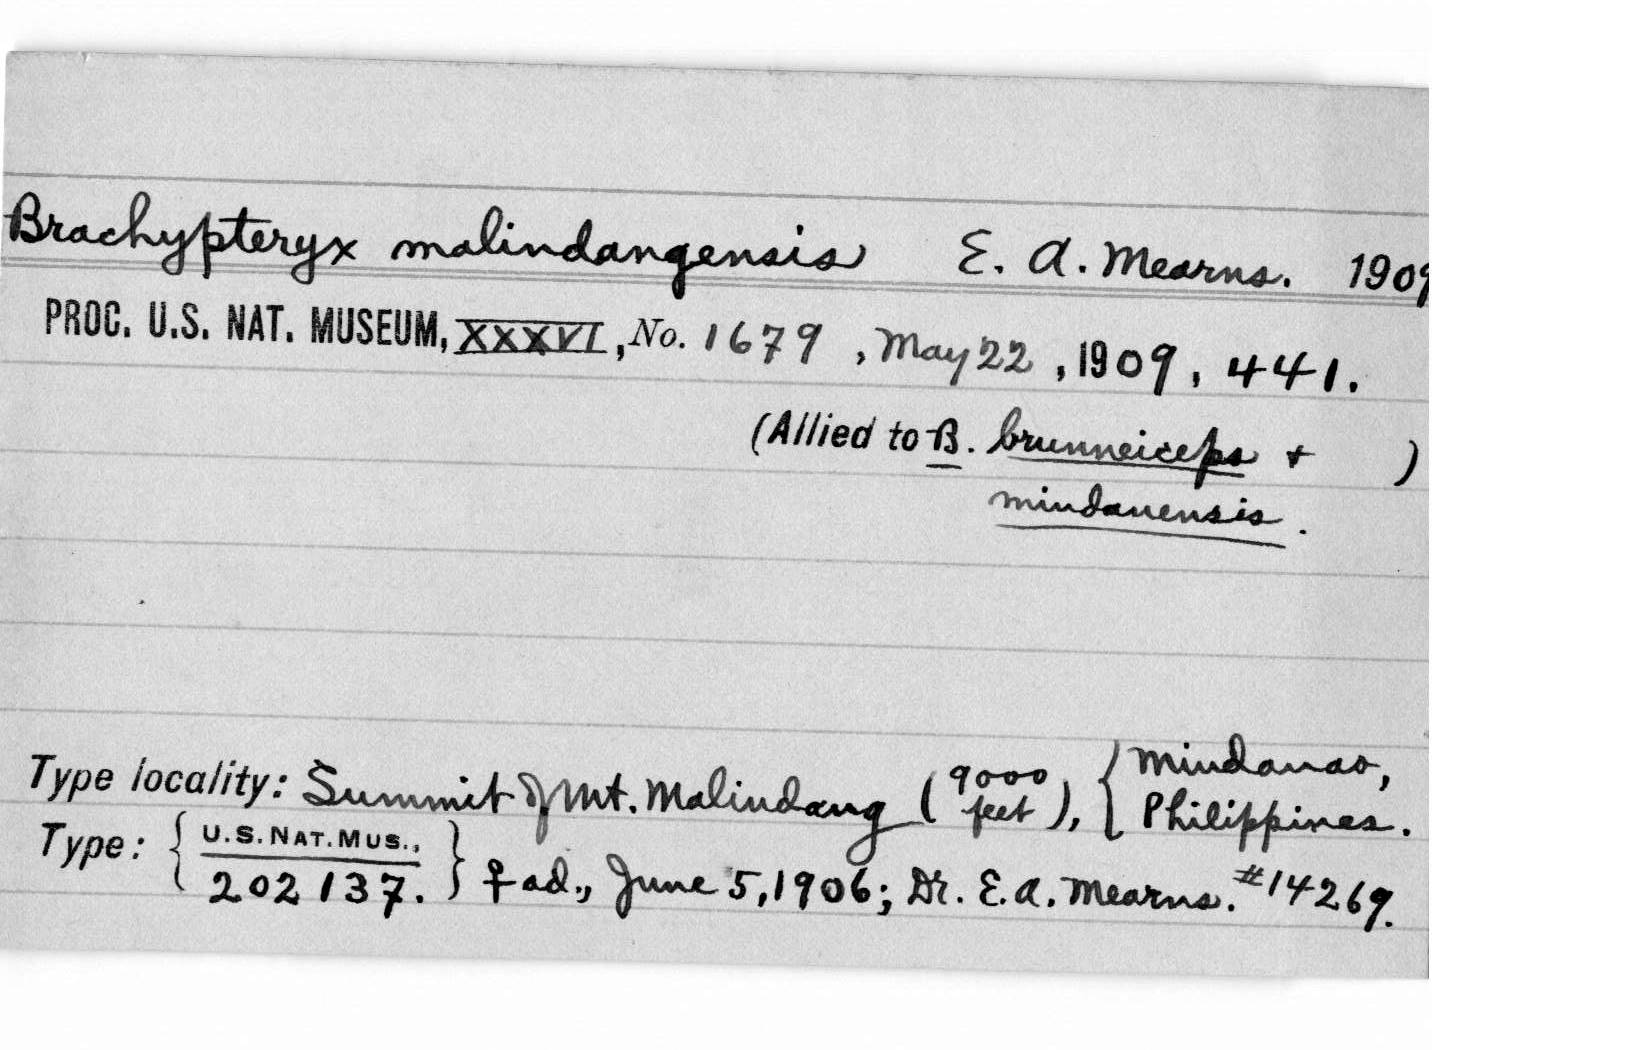 Brachypteryx malindangensis E. A. Mearns. 1909
PROC. U.S. NAT. MUSEUM, XXXVI, No. 1679, May 22, 1909, 441.
(Allied to B. brunneiceps + )
mindanensis.
Type locality: Summit of Mt. Malindang (9000 feet), { Mindanao, Philippines.
Type: { U.S. NAT. MUS., 202137. } ♀ ad., June 5, 1906; Dr. E. A. Mearns. #14269.